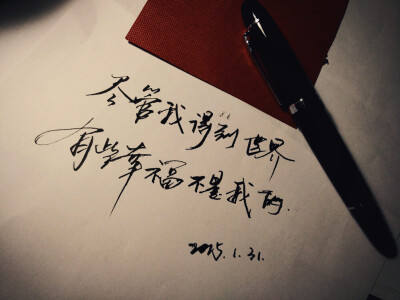 尽管我得到世界
有些幸福不是我的.
2015.1.31.